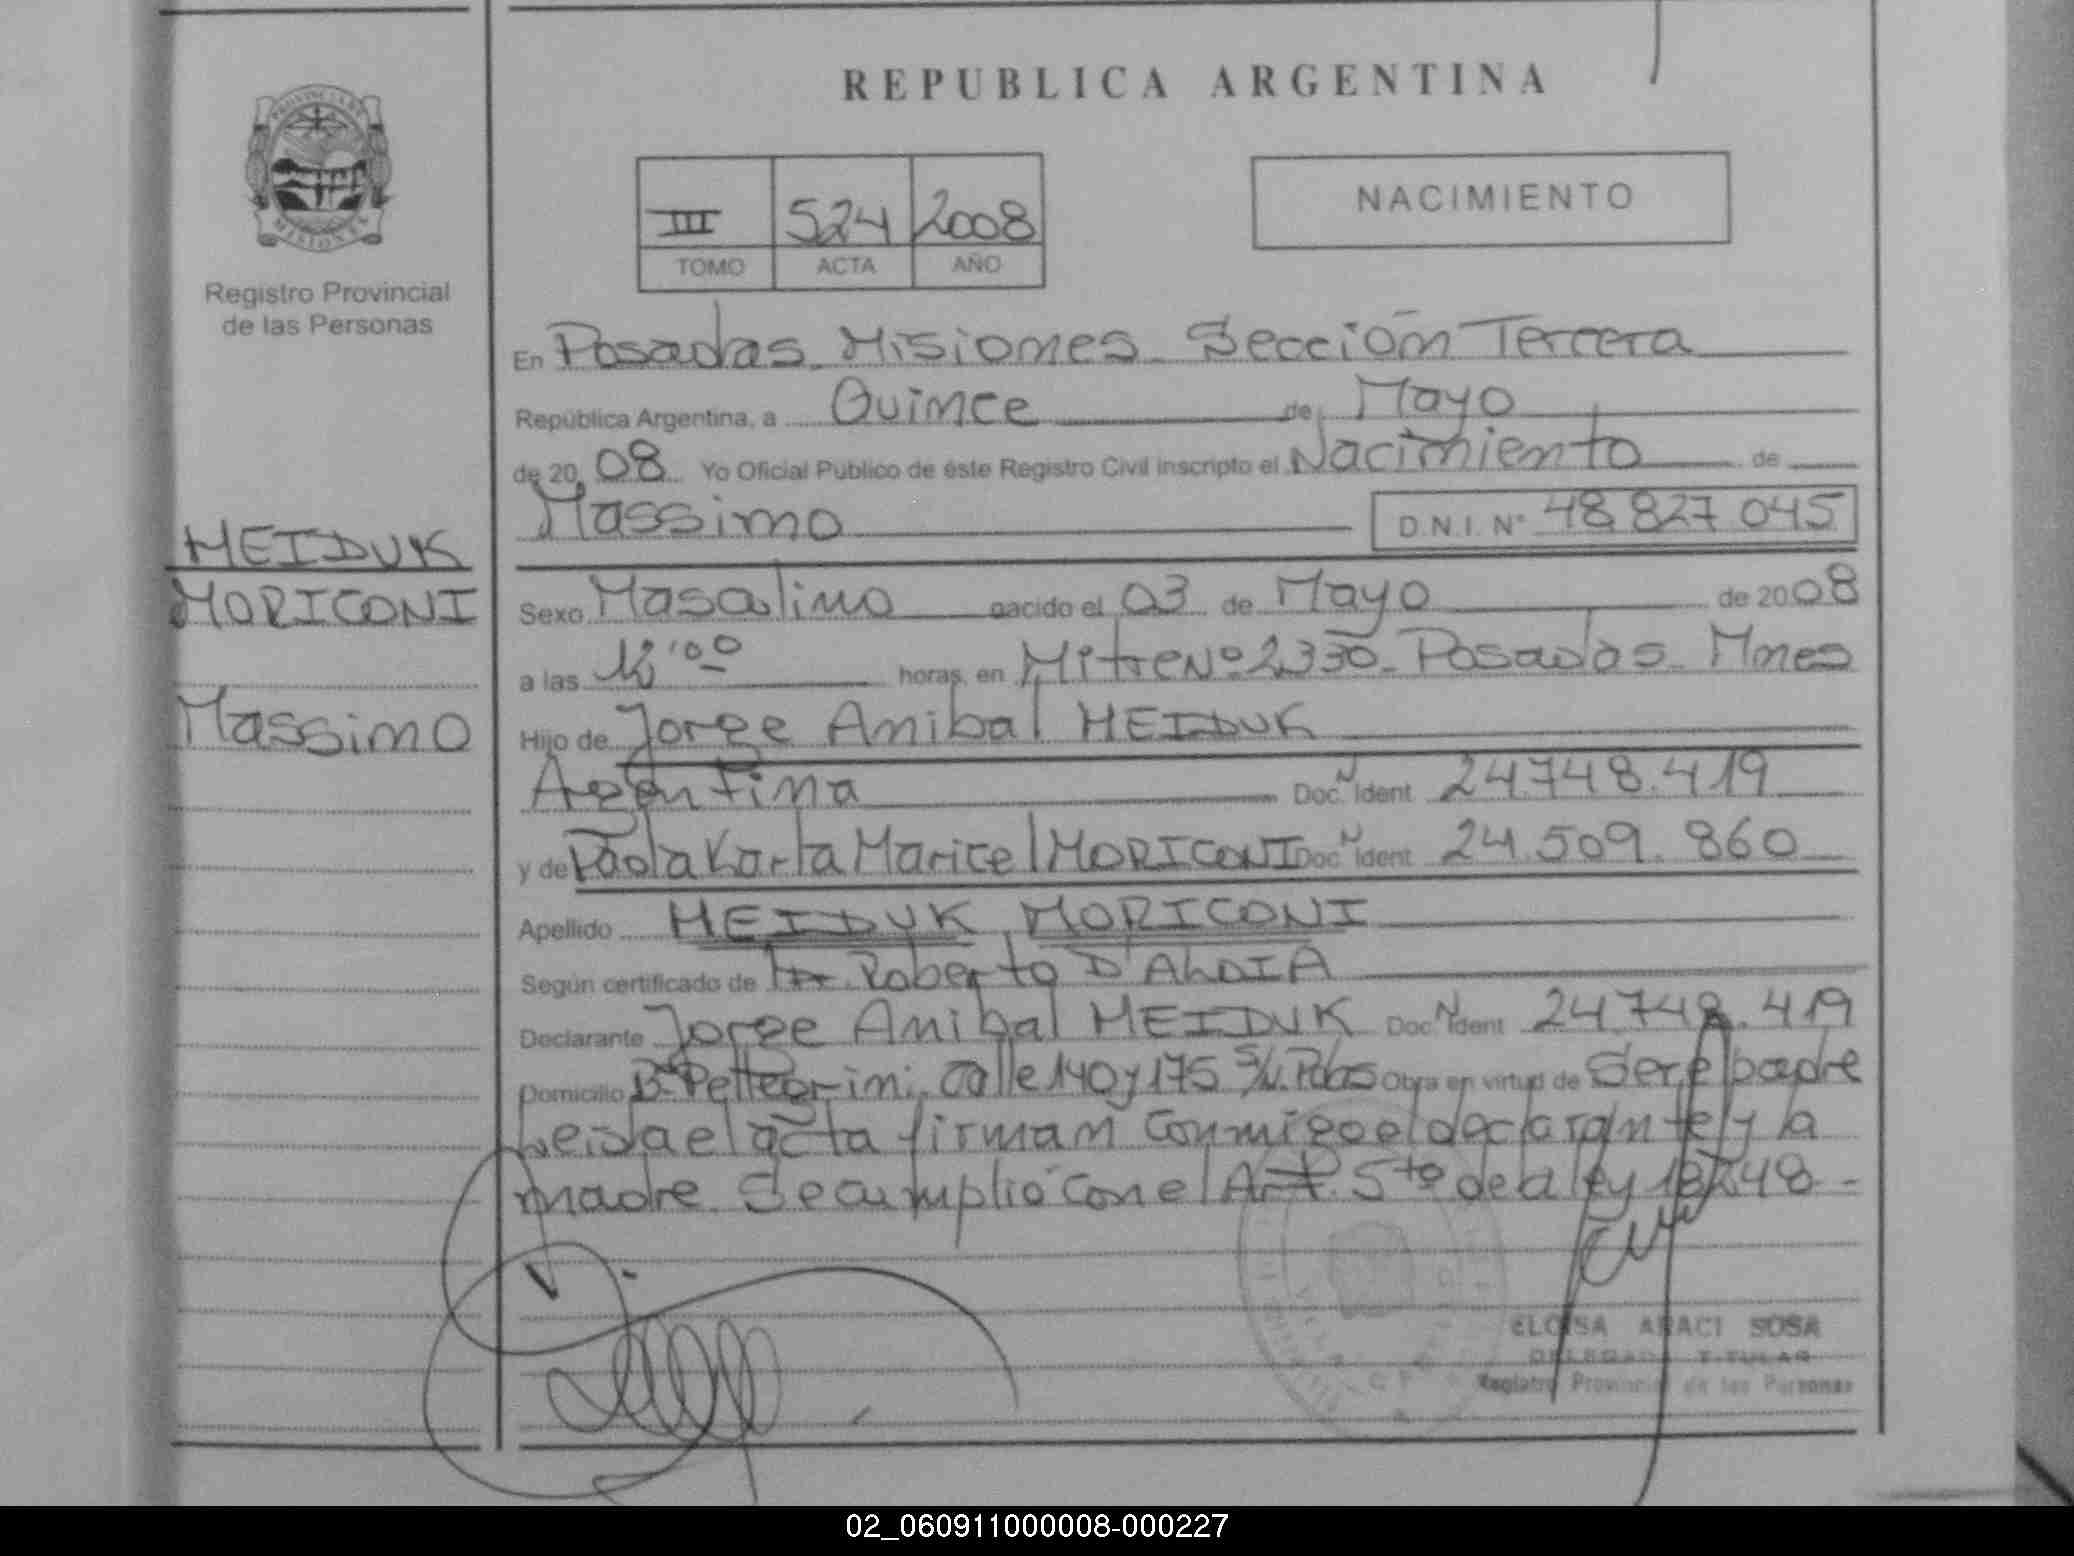 REPUBLICA ARGENTINA
PROVINCIA DE
MISIONES
Registro Provincial
de las Personas
III 524 2008
TOMO ACTA AÑO
NACIMIENTO
En Posadas. Misiones. Sección Tercera
República Argentina, a Quince de Mayo
de 2008 Yo Oficial Público de éste Registro Civil inscripto el Nacimiento de
Massimo D.N.I. Nº 48.827.045
HEIDUK
MORICONI
Massimo
Sexo Masculino nacido el 03 de Mayo de 2008
a las 12'00 horas, en Mitre Nº 2330. Posadas. Mnes
Hijo de Jorge Anibal HEIDUK
Argentina Doc. N Ident 24.748.419
y de Paola Karla Maricel MORICONI Doc. N Ident 24.509.860
Apellido HEIDUK MORICONI
Según certificado de Dr. Roberto
Declarante Jorge Anibal HEIDUK Doc. N Ident 24.748.419
Domicilio Bº Pellegrini. Calle 140 y 175 S/N. Pdas Obra en virtud de ser el padre
Leida el acta firman conmigo el declarante y la
madre. Se cumplió con el Art. 5to de la ley 18248 -
ELOISA ARACI SOSA
DELEGADA TITULAR
Registro Provincial de las Personas
02_060911000008-000227